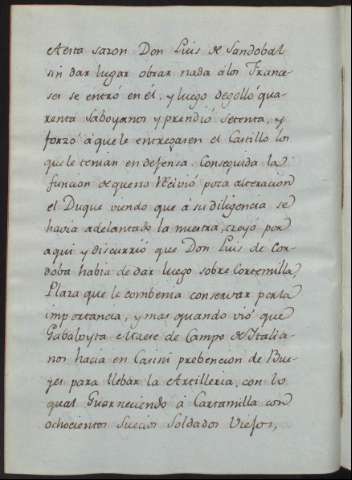 A esta sazon Don Luis de Sandobal
sin dar lugar obrar nada álos France-
ses se entró en él, y luego degolló qua-
renta Saboyanos y prendió setenta, y
forzó áque le entregasen el Castillo los
que le tenian en defensa. Conseguida la
funcion de que no recivió poca alteracion
el Duque viendo que á su diligencia se
havia adelantado la nuestra, creyó por
aqui y discurrió que Don Luis de Cor-
doba habia de dar luego sobre Cortemilla,
Plaza que le combenia conservar por la
importancia, y mas quando vió que
Maese de Campo de Italia-
nos hacia en prebencion de Bue-
yes para llebar la Artilleria, con lo
qual Guarneciendo á Cartamilla con
ochocientos Suecos Soldados Viejos,